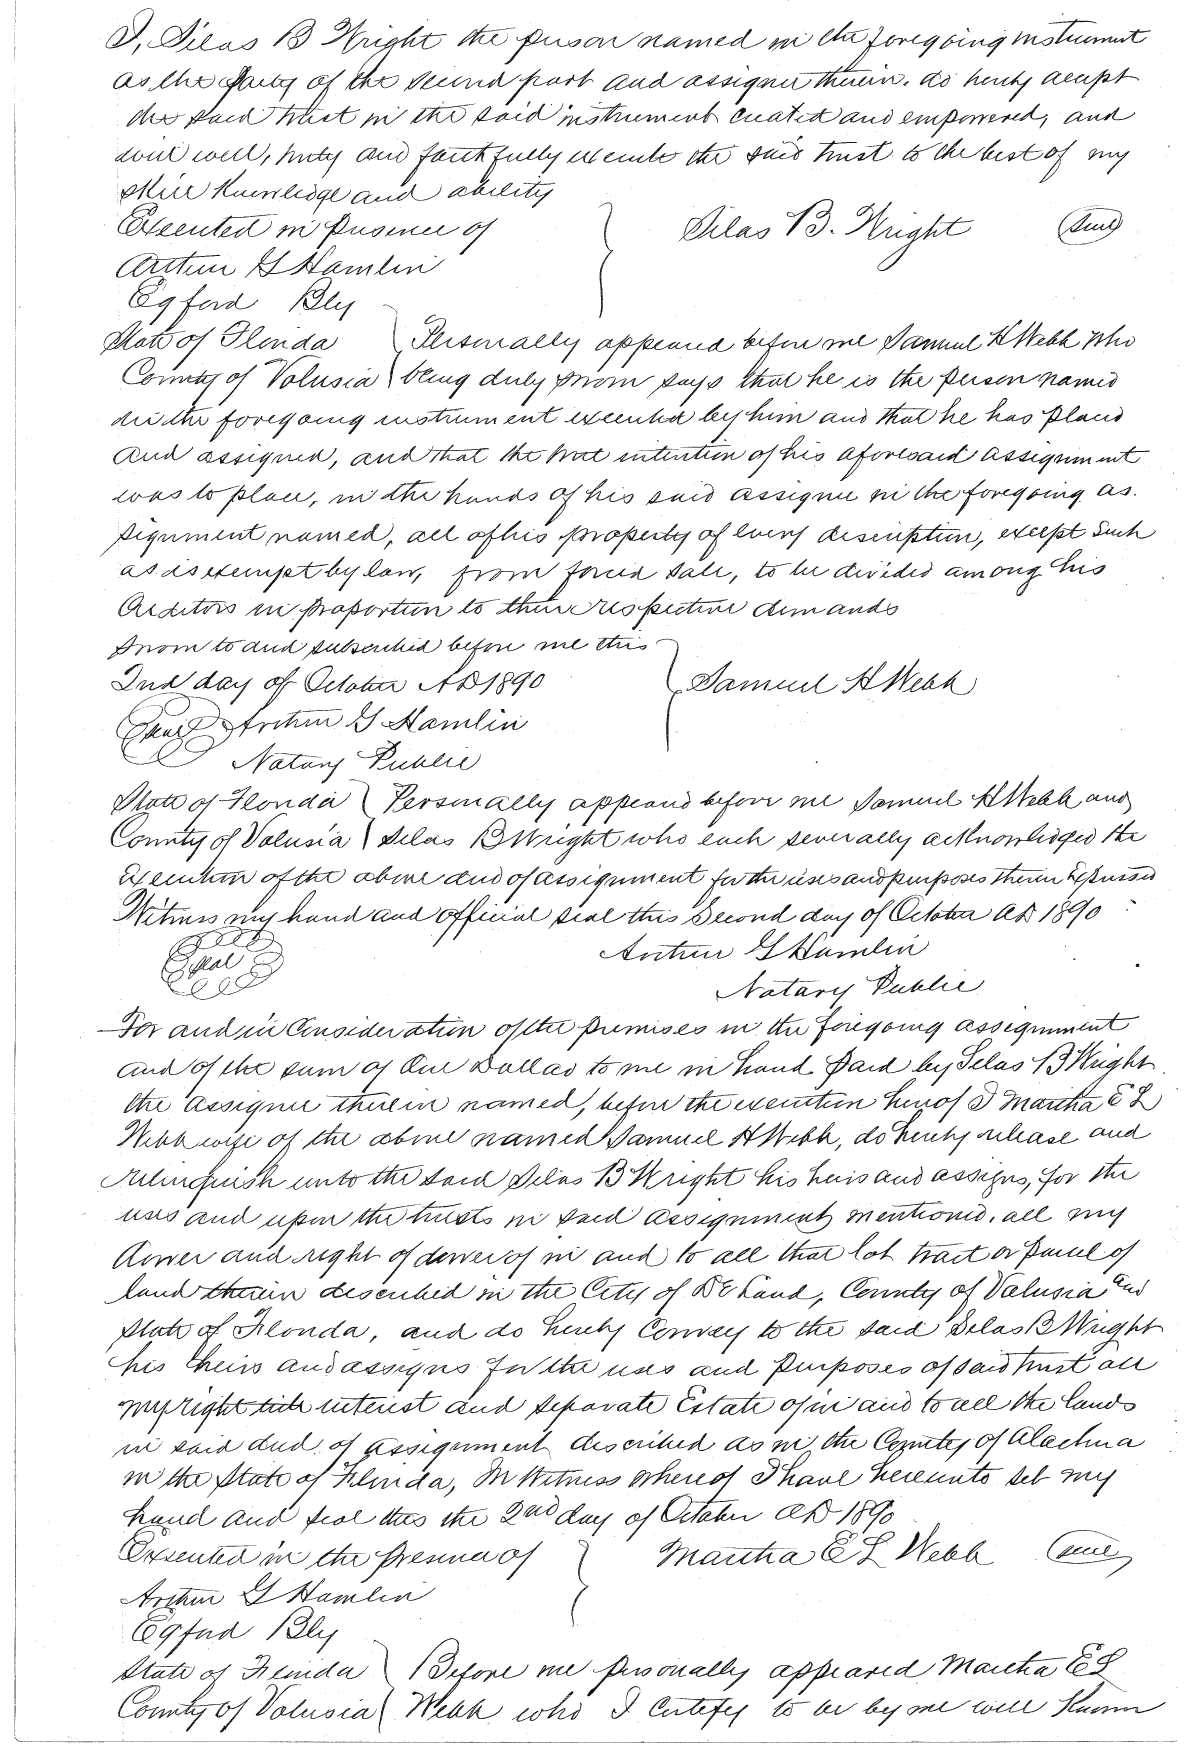 I, Silas B Wright the person named in the foregoing instrument
as the party of the second part and assignee therein. do hereby accept
the said trust in the said instrument created and empowered, and
will well, truly and faithfully execute the said trust to the best of my
skill knowledge and ability
Executed in presence of } Silas B. Wright (Seal)
Arthur G Hamlin
Egford Bly
State of Florida } Personally appeared before me Samuel H Webb who
County of Volusia } being duly sworn says that he is the person named
in the foregoing instrument executed by him and that he has placed
and assigned, and that the true intention of his aforesaid assignment
was to place, in the hands of his said assignee in the foregoing as.
signment named, all of his property of every description, except such
as is exempt by law, from forced sale, to be divided among his
Creditors in proportion to their respective demands
Sworn to and subscribed before me this
2nd day of October AD 1890 } Samuel H Webb
(Seal) Arthur G Hamlin
Notary Public
State of Florida } Personally appeared before me Samuel H Webb and
County of Volusia } Silas B Wright who each severally acknowledged the
execution of the above deed of assignment for the uses and purposes therein Expressed
Witness my hand and official seal this Second day of October AD 1890
(Seal) Arthur G Hamlin
Notary Public
For and in Consideration of the premises in the foregoing assignment
and of the sum of One Dollar to me in hand paid by Silas B Wright
the assignee therein named, before the execution hereof I Martha E L
Webb wife of the above named Samuel H Webb, do hereby release and
relinquish unto the said Silas B Wright his heirs and assigns, for the
uses and upon the trusts in said assignment mentioned, all my
dower and right of dower of in and to all that lot tract or parcel of
land therein described in the City of DeLand, County of Valusia and
State of Florida, and do hereby Convey to the said Silas B Wright
his heirs and assigns for the uses and purposes of said trust all
my right title interest and separate Estate of in and to all the lands
in said deed of assignment described as in the County of Alachua
in the State of Florida, In Witness whereof I have hereunto set my
hand and seal this the 2nd day of October AD 1890
Executed in the presence of } Martha E L Webb (Seal)
Arthur G Hamlin
Egford Bly
State of Florida } Before me personally appeared Martha E L
County of Volusia } Webb who I certify to be by me well known